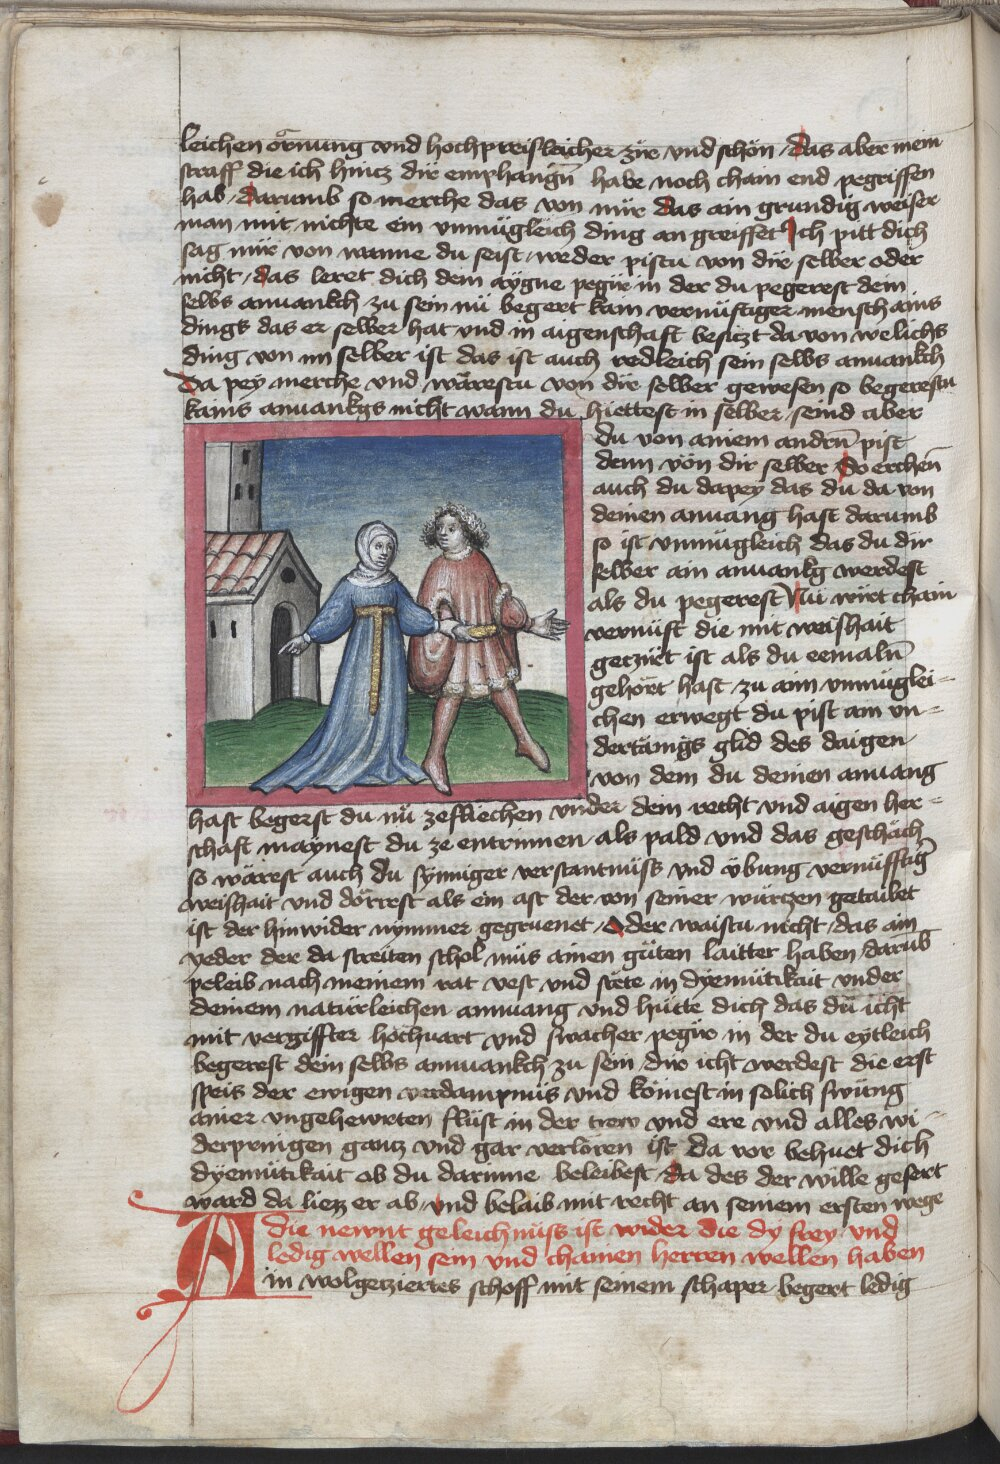 leichen ornung vnd hochpreisleicher zir vnd schön / das aber mein
straff die ich hincz dir emphangn̄ habe noch cham end pegriffen
hab / darumb so merche das von mir das ain grundig weiser
man mit nichte ein vnmügleich ding an greiffet Ich pitt dich
sag mir von wanne du seist / weder pistu von dir selber oder
nicht / das leret dich dem aygne pegir in der du pegerest dein
selbs anuankch / zu sein nü begert kain vernüftiger mensch ains
dings das er selber hat vnd in aigenschaft besiczt da von welichs
ding von im selber ist das ist auch redleich sein selbs anuankch
Da pey merche vnd wärestu von dir selber gewesen so begerestu
kains anuankgs nicht wann du hiettest in selber / seind aber
du von ainem andrn̄ pist
denn von dir selber So erchen̄
auch du dapey das du da von
deinen anuang hast darumb
so ist vnmügleich das du dir
selber ain anuankg werdest
als du pegerest Nü wirt chain
vernüft die mit weishait
gecziret ist als du eemaln̄
gehöret hast / zu aim vnmüglei=
chen erwegt du pist am vn=
dertänigs glid des daigen
von dem du deinen anuang
hast begerst du nü zefliechen vnder dem recht vnd aigen her=
schaft maynest du ze entrinnen als pald vnd das geschäch
so wärest auch du synniger verstantnüss vnd übung vernüfftiḡ
weishait vnd dörrest als ein ast der von seiner würczen getailet
ist der hinwider nymmer gegruenet / Oder waistu nicht / das ain
yeder der da streiten schol müs ainen güten laitter haben / darūb
peleib nach meinem rat vest vnd stete in dyemütikait vnder
deinem natürleichen anuang vnd hütte dich das du icht
mit vergiffter hochuart vnd swacher pegir in der du eytleich
begerest dein selbs anuankch zu sein dir icht werdest die erst
speis der ewigen verdampnüs vnd kömest in solich swüng
ainer vngehewrten flüst in der trew vnd ere vnd alles wi=
derpringen gancz vnd gar verloren ist Da vor behuet dich
dyemütikait ob du darinne beleibest / Da des der wille gefert
ward da liezz er ab vnd belaib mit recht an seinem ersten wege
die newnt geleichnüss ist wider die dy frey vnd
ledig wellen sein vnd chainen herren wellen haben
Ain wolgecziertes schoff mit seinem schaper begert ledig